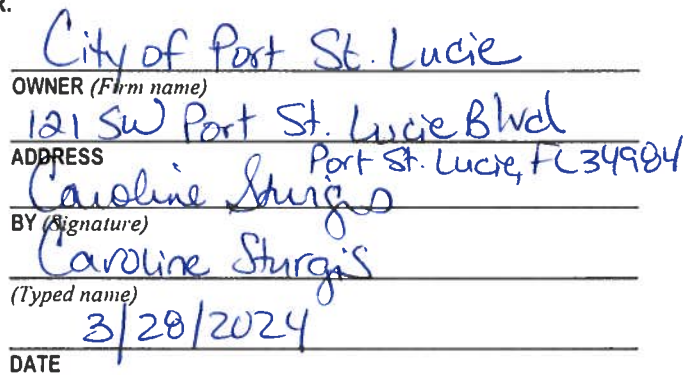 R.
City of Port St. Lucie
OWNER (Firm name)
121 SW Port St. Lucie Blvd
ADDRESS Port St. Lucie, FL 34984
Caroline Sturgis
BY (Signature)
Caroline Sturgis
(Typed name)
3/28/2024
DATE